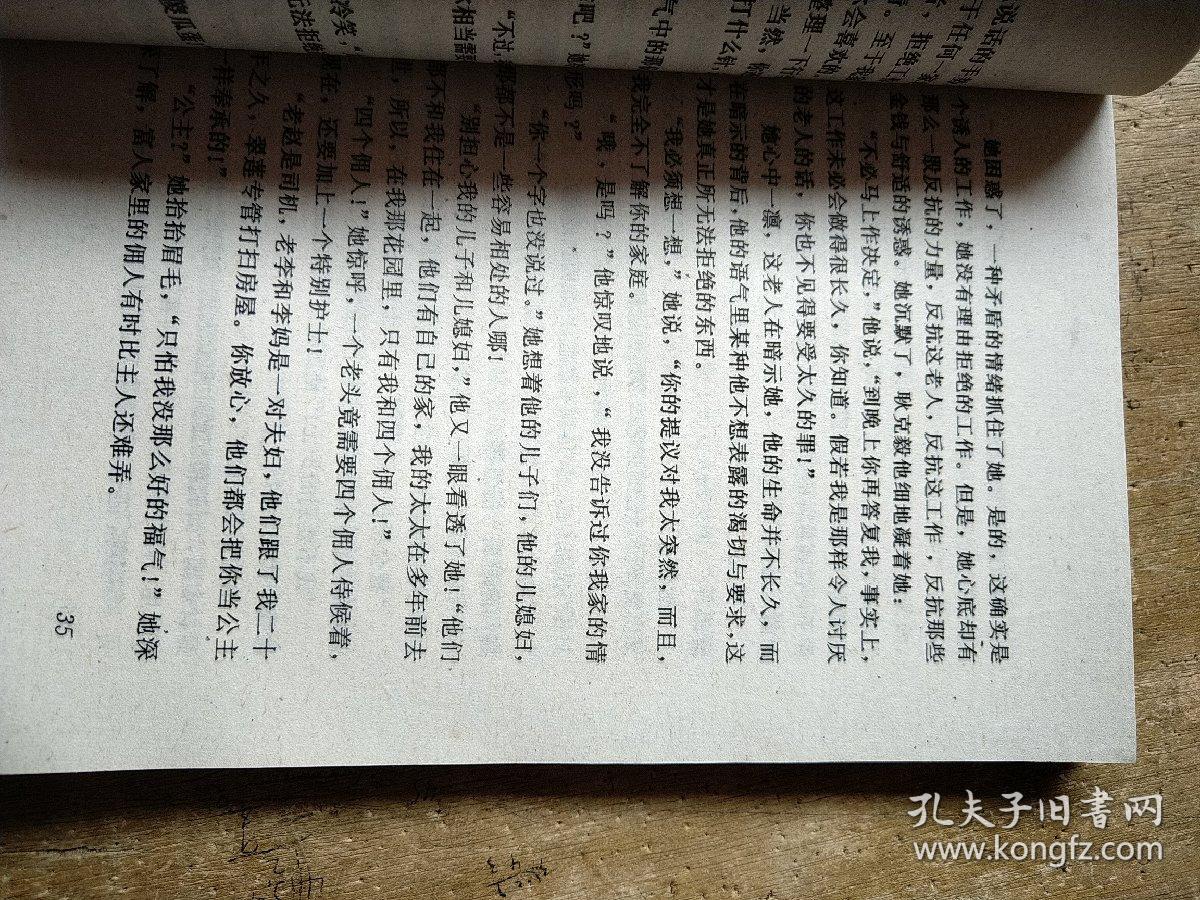 说话的
于任何一
，拒绝工
。至于
会喜欢
整理一下
当然，你
打什么针
气中的
吧？”她
“不过，
相当需
冷笑，“
无法拒绝
傻瓜
她困惑了，一种矛盾的情绪抓住了她。是的，这确实是
个诱人的工作，她没有理由拒绝的工作。但是，她心底却有
那么一股反抗的力量，反抗这老人，反抗这工作，反抗那些
金钱与舒适的诱惑。她沉默了，耿克毅他细地凝着她：
“不必马上作决定，”他说，“到晚上你再答复我，事实上，
这工作未必会做得很长久，你知道。假若我是那样令人讨厌
的老人的话，你也不见得要受太久的罪！”
她心中一凛，这老人在暗示她，他的生命并不长久，而
在暗示的背后，他的语气里某种他不想表露的渴切与要求，这
才是她真正所无法拒绝的东西。
“我必须想一想，”她说，“你的提议对我太突然，而且，
我完全不了解你的家庭。
“哦，是吗？”他惊叹地说，“我没告诉过你我家的情
形吗？”
“你一个字也没说过。”她想着他的儿子们，他的儿媳妇，
那都不是一些容易相处的人哪！
“别担心我的儿子和儿媳妇，”他又一眼看透了她！“他们
都不和我住在一起，他们有自己的家，我的太太在多年前去
，所以，在我那花园里，只有我和四个佣人！”
“四个佣人！”她惊呼，一个老头竟需要四个佣人侍候着，
在，还要加上一个特别护士！
“老赵是司机，老李和李妈是一对夫妇，他们跟了我二十
年之久，翠莲专管打扫房屋。你放心，他们都会把你当公主
一样奉承的！”
“公主？”她抬抬眉毛，“只怕我没那么好的福气！”她深
了解，富人家里的佣人有时比主人还难弄。
35
孔夫子旧书网
www.kongfz.com